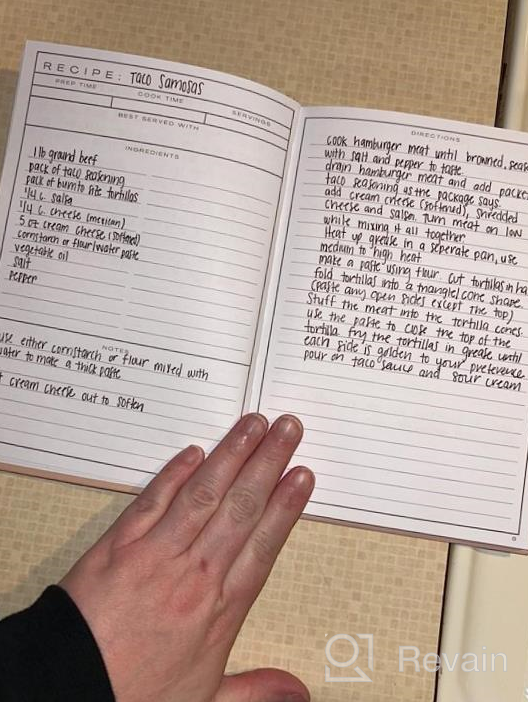 RECIPE: Taco Samosas
PREP TIME
COOK TIME
SERVINGS
BEST SERVED WITH
INGREDIENTS
1 lb ground beef
pack of taco seasoning
pack of burrito size tortillas
1/4 c. salsa
1/4 c. cheese (mexican)
5 oz cream cheese (softened)
cornstarch or flour/water paste
vegetable oil
salt
pepper
NOTES
use either cornstarch or flour mixed with
water to make a thick paste
cream cheese out to soften
DIRECTIONS
cook hamburger meat until browned, seas
with salt and pepper to taste.
drain hamburger meat and add packet
taco seasoning as the package says.
add cream cheese (softened), shredded
cheese and salsa. Turn meat on low
while mixing it all together.
Heat up grease in a seperate pan, use
medium to high heat
make a paste using flour. Cut tortillas in ha
fold tortillas into a triangle/cone shape.
(paste any open sides except the top)
Stuff the meat into the tortilla cones.
use the paste to close the top of the
tortilla. fry the tortillas in grease until
each side is golden to your preference
pour on taco sauce and sour cream
Revain